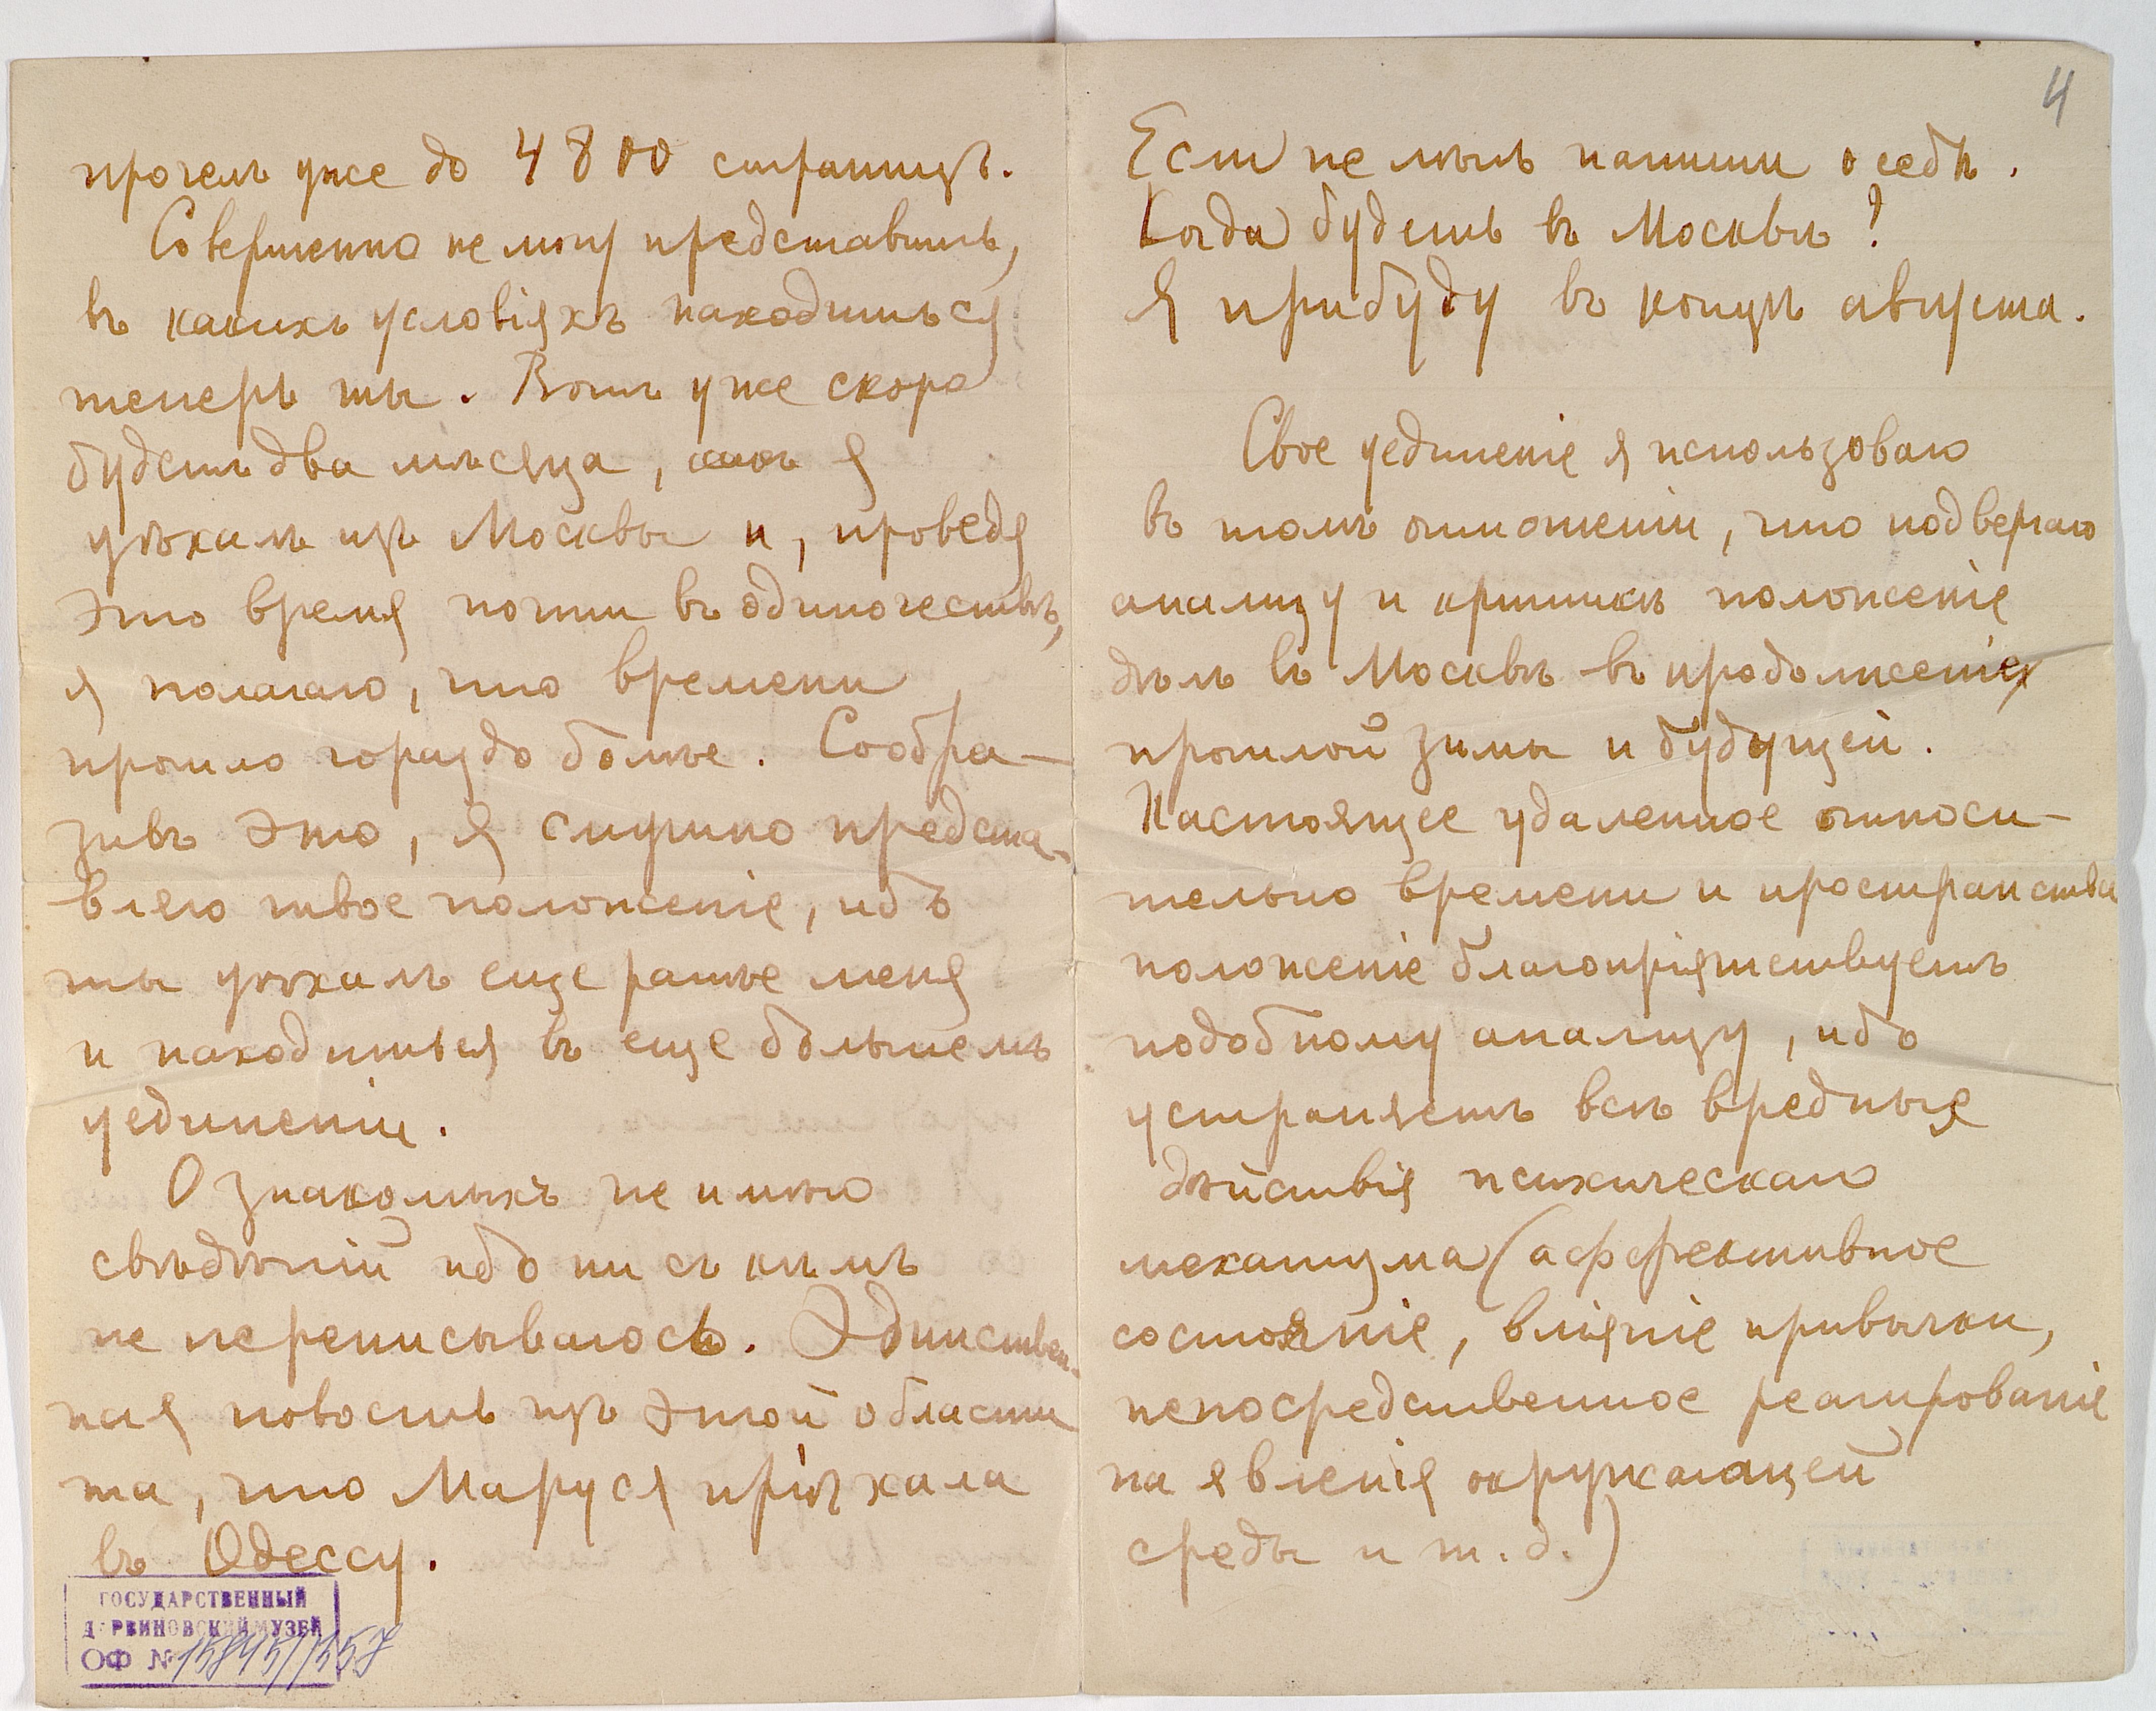 прочелъ уже до 4800 страницъ.
Совершенно не могу представить,
въ какихъ условіяхъ находишься
теперь ты. Вотъ уже скоро
будетъ два мѣсяца, какъ я
уѣхалъ изъ Москвы и, проведя
это время почти въ одиночествѣ,
я полагаю, что времени
прошло гораздо болѣе. Сообра-
зивъ это, я смутно предста-
вляю твое положеніе, ибо
ты уѣхалъ еще ранѣе меня
и находишься въ еще большемъ
уединеніи.
О знакомыхъ не имѣю
свѣдѣній ибо ни съ кѣмъ
не переписываюсь. Единствен-
ная новость изъ этой области
та, что Маруся пріѣхала
въ Одессу.
ГОСУДАРСТВЕННЫЙ
ДАРВИНОВСКИЙ МУЗЕЙ
ОФ № 15845/1357
4
Если не лѣнь напиши о себѣ.
Когда будешь въ Москвѣ?
Я прибуду въ концѣ августа.
Свое уединеніе я использоваю
въ томъ отношеніи, что подвергаю
анализу и критикѣ положеніе
дѣлъ въ Москвѣ въ продолженіе
прошлой зимы и будущей.
Настоящее удаленное относи-
тельно времени и пространства
положеніе благопріятствуетъ
подобному анализу, ибо
устраняетъ всѣ вредныя
дѣйствія психическаго
механизма (аффективное
состояніе, вліяніе привычки,
непосредственное реагированіе
на явленія окружающей
среды и т.д.)